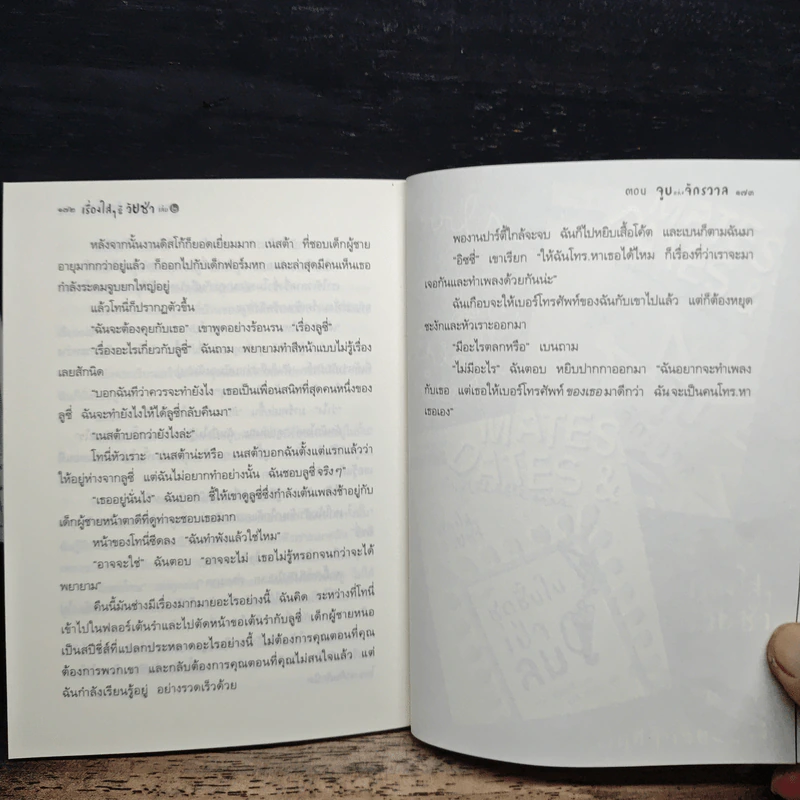 ๑๗๒ เรื่องใส ๆ วัยซ่า เล่ม ๒
หลังจากนั้นงานดิสโก้ก็ยอดเยี่ยมมาก เนสต้า ที่ชอบเด็กผู้ชาย
อายุมากกว่าอยู่แล้ว ก็ออกไปกับเด็กฟอร์มหก และล่าสุดมีคนเห็นเธอ
กำลังระดมจูบยกใหญ่อยู่
แล้วโทนี่ก็ปรากฏตัวขึ้น
“ฉันจะต้องคุยกับเธอ” เขาพูดอย่างร้อนรน “เรื่องลูซี่”
“เรื่องอะไรเกี่ยวกับลูซี่” ฉันถาม พยายามทำสีหน้าแบบไม่รู้เรื่อง
เลยสักนิด
“บอกฉันทีว่าควรจะทำยังไง เธอเป็นเพื่อนสนิทที่สุดคนหนึ่งของ
ลูซี่ ฉันจะทำยังไงให้ได้ลูซี่กลับคืนมา”
“เนสต้าบอกว่ายังไงล่ะ”
โทนี่หัวเราะ “เนสต้าน่ะหรือ เนสต้าบอกฉันตั้งแต่แรกแล้วว่า
ให้อยู่ห่างจากลูซี่ แต่ฉันไม่อยากทำอย่างนั้น ฉันชอบลูซี่จริง ๆ”
“เธออยู่นั่นไง” ฉันบอก ชี้ให้เขาดูลูซี่ซึ่งกำลังเต้นเพลงช้าอยู่กับ
เด็กผู้ชายหน้าตาดีที่ดูท่าจะชอบเธอมาก
หน้าของโทนี่ซีดลง “ฉันทำพังแล้วใช่ไหม”
“อาจจะใช่” ฉันตอบ “อาจจะไม่ เธอไม่รู้หรอกจนกว่าจะได้
พยายาม”
คืนนี้มันช่างมีเรื่องมากมายอะไรอย่างนี้ ฉันคิด ระหว่างที่โทนี่
เข้าไปในฟลอร์เต้นรำและไปตัดหน้าขอเต้นรำกับลูซี่ เด็กผู้ชายหนอ
เป็นสปีชี่ส์ที่แปลกประหลาดอะไรอย่างนี้ ไม่ต้องการคุณตอนที่คุณ
ต้องการพวกเขา และกลับต้องการคุณตอนที่คุณไม่สนใจแล้ว แต่
ฉันกำลังเรียนรู้อยู่ อย่างรวดเร็วด้วย
ตอน จูบแห่งจักรวาล ๑๗๓
พองานปาร์ตี้ใกล้จะจบ ฉันก็ไปหยิบเสื้อโค้ต และเบนก็ตามฉันมา
“อิซซี่” เขาเรียก “ให้ฉันโทร.หาเธอได้ไหม ก็เรื่องที่ว่าเราจะมา
เจอกันและทำเพลงด้วยกันน่ะ”
ฉันเกือบจะให้เบอร์โทรศัพท์ของฉันกับเขาไปแล้ว แต่ก็ต้องหยุด
ชะงักและหัวเราะออกมา
“มีอะไรตลกหรือ” เบนถาม
“ไม่มีอะไร” ฉันตอบ หยิบปากกาออกมา “ฉันอยากจะทำเพลง
กับเธอ แต่เธอให้เบอร์โทรศัพท์ของเธอมาดีกว่า ฉันจะเป็นคนโทร.หา
เธอเอง”